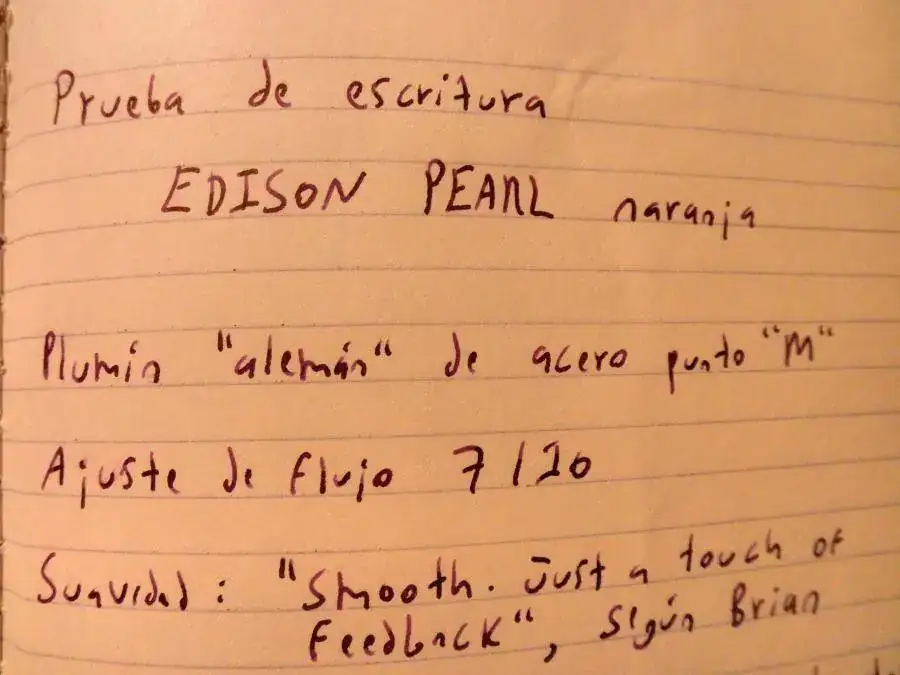 Prueba de escritura
EDISON PEARL naranja
Plumín "alemán" de acero punto "M"
Ajuste de flujo 7/10
Suavidad: "Smooth. Just a touch of
feedback", según Brian